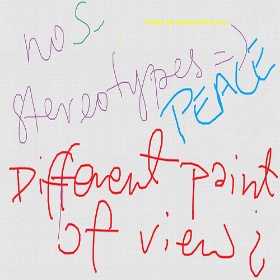 no S
stereotypes =)
PEACE
Different point
of view ¿